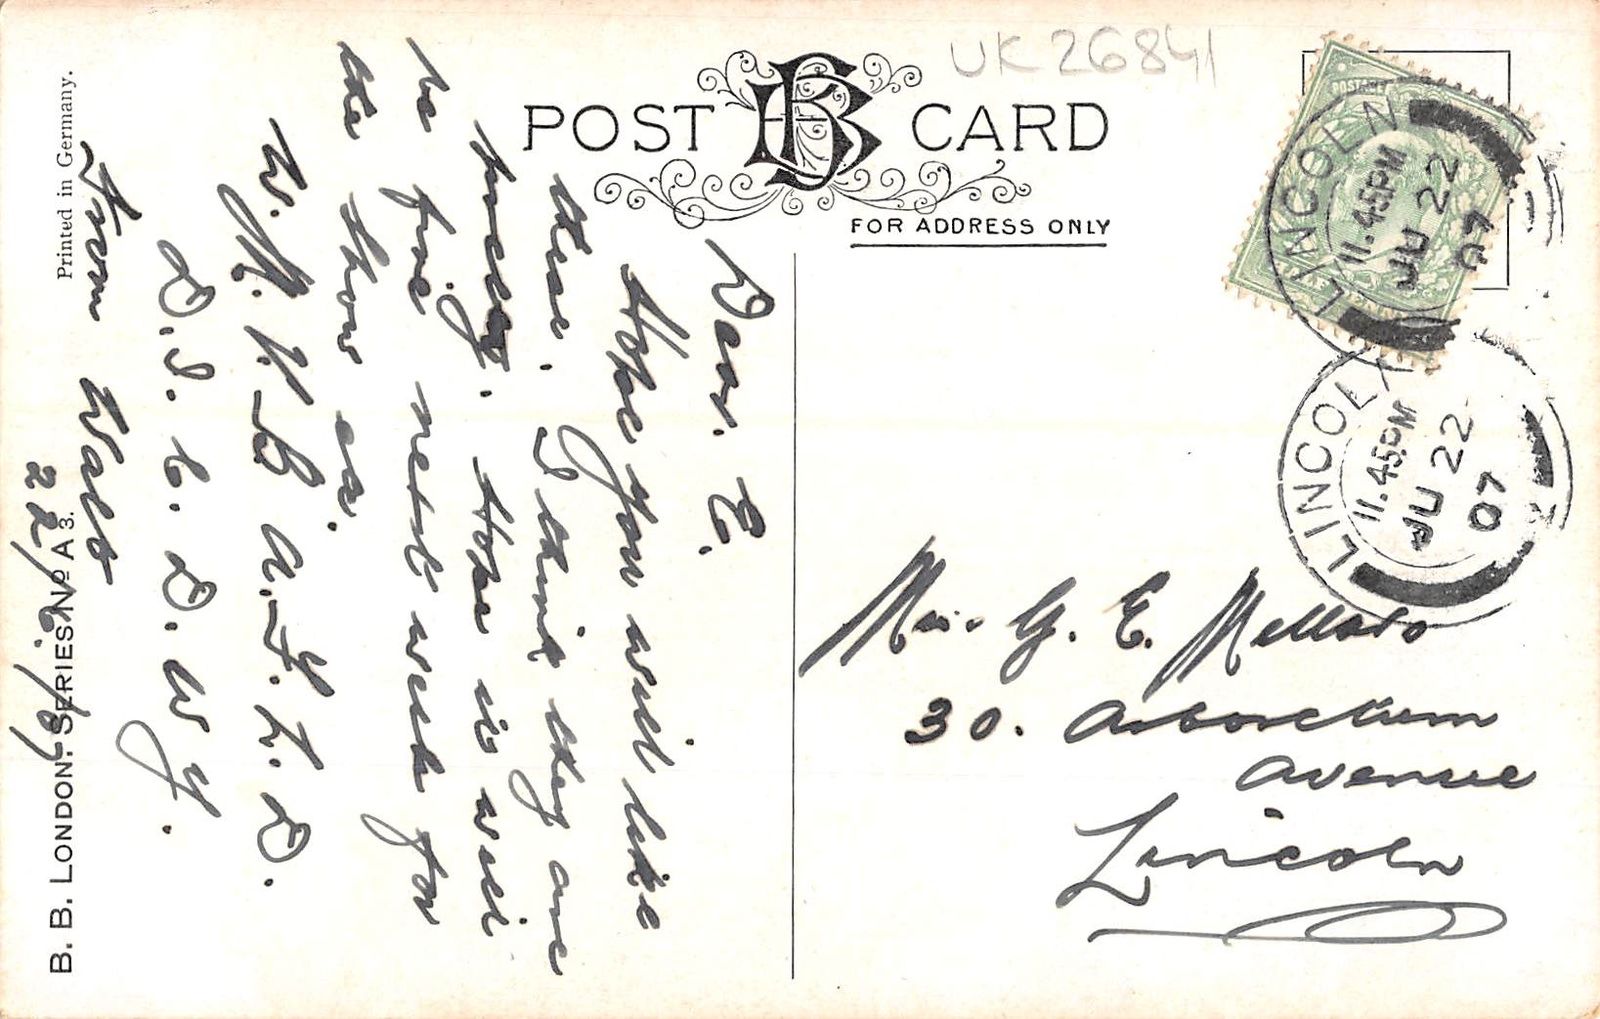 UK 26841
POST CARD
FOR ADDRESS ONLY
LINCOLN
11.45PM
JU 22
07
LINCOLN
11.45PM
JU 22
07
2
Miss. G. E. Mellars
30. Arboretum
Avenue
Lincoln
Dear. E.
Hope you will like
these. I think they are
. Hope it will
be fine next week for
the show
W. M. I. B A. L. L. D.
D. I. C. D. W Y.
From Walt
22/6/07
Printed in Germany.
B. B. LONDON. SERIES No A 3.